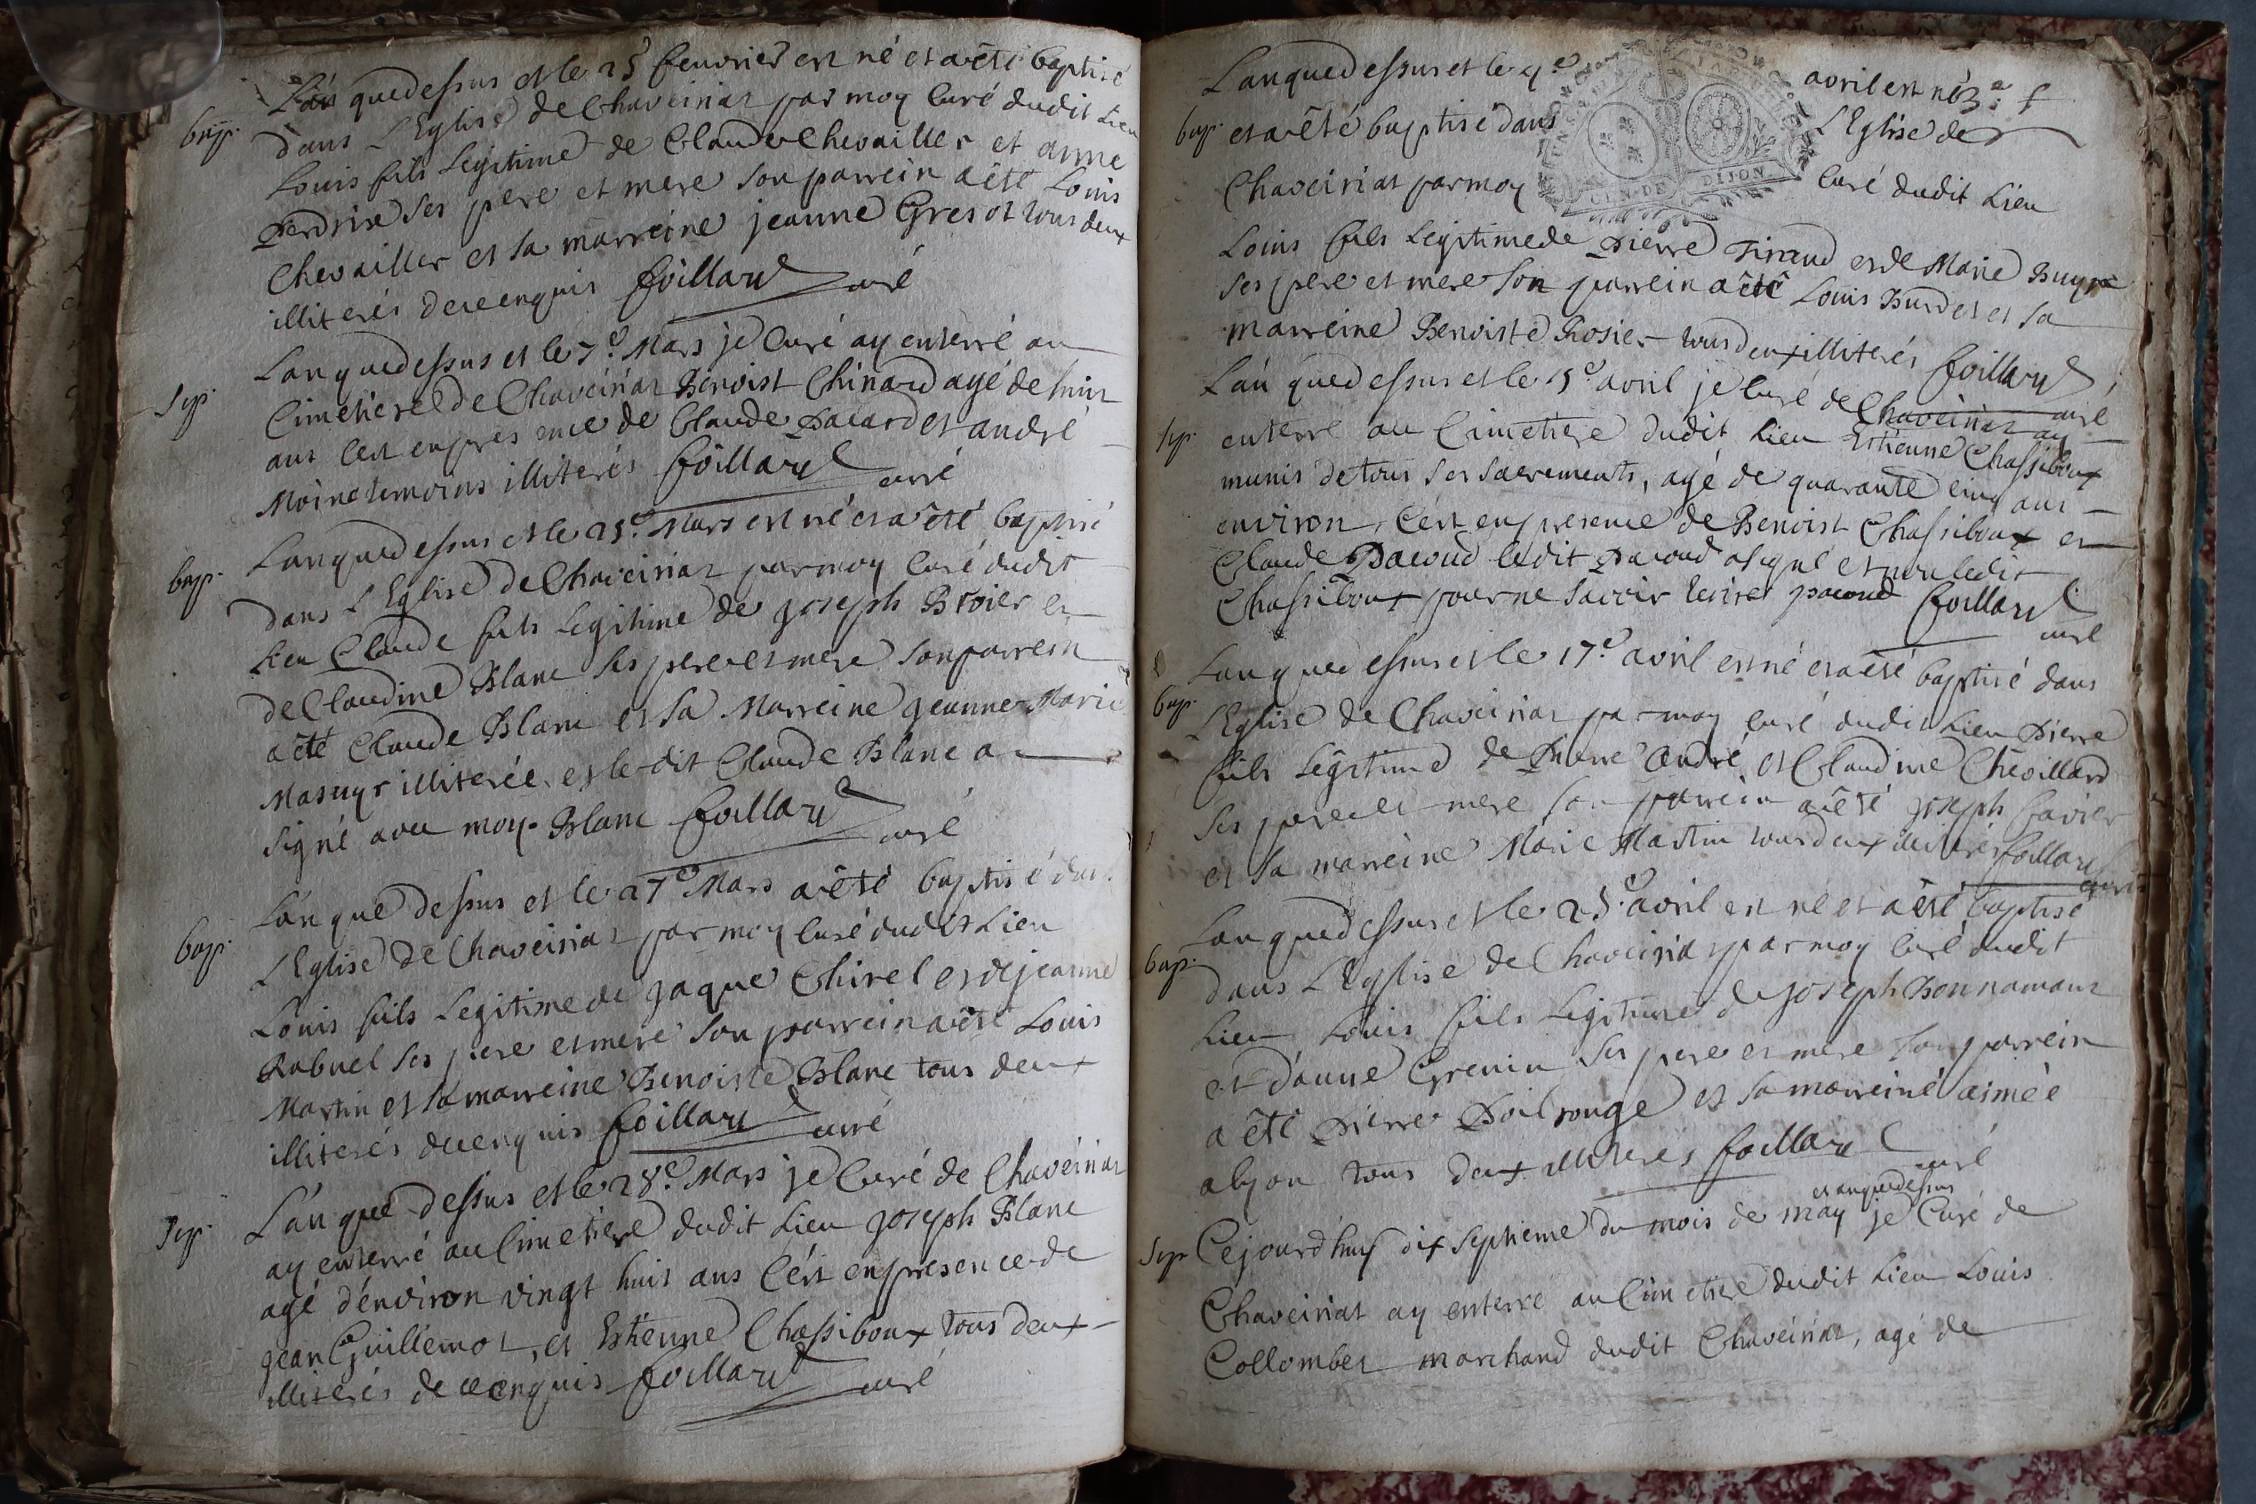 L'án quedessus et le 25 feuvrier est né et aêté baptisé
bap. dans L'Eglise de Chaveiriat par moy Curé dudit Lieu
Louis fils Legitime de Claude Chevailler et anne
Perdrix ses pere et mere son parrein aêté Louis
Chevailler et sa marreine jeanne Gresot tous deux
illiterés de ce enquis foillard curé
L'an quedessus et le 7.e Mars je Curé ay enterré au
Sep. Cimetiere de Chaveiriat Benoist Chinard agé de huit
ans C'est en presence de Claude Pacard et andré
Moine temoins illiterés foillard curé
L'an quedessus et le 25.e Mars est né et a êté baptisé
bap. dans L'Eglise de Chaveiriat par moy Curé dudit
Lieu Claude fils Legitime de joseph Broier et
de Claudine Blanc ses pere et mere son parrein
a êté Claude Blanc et sa Marreine jeanne Marie
Masuyr illiterée et le dit Claude Blanc a
signé avec moy. Blanc foillard curé
L'án que dessus et le 27e Mars a êté baptisé dans
bap. L'Eglise de Chaveiriat par moy Curé dudit Lieu
Louis fils Legitime de jaque Chirel et de jeanne
Rabuel ses pere et mere son parrein a êté Louis
Martin et sa marreine Benoiste Blanc tous deux
illiterés de ce enquis foillard curé
L'án que dessus et le 28.e Mars je Curé de Chaveiriat
Sep. ay enterré au Cimetiere dudit Lieu joseph Blanc
agé d'environ vingt huit ans C'ést en presence de
jean Guillemot, et Estienne Chassiboux tous deux
illiterés de ce enquis foillard curé
L'an quedessus et le 4.e avril est né
bap. et a êté baptisé dans L'Eglise de
GEN. DE DIJON
Chaveiriat par moy Curé dudit Lieu
Louis fils Legitime de Pierre Tiraud et de Marie
ses pere et mere son parrein a êté Louis Burdet et sa
marreine Benoiste Rosier tous deux illiterés foillard curé
L'án quedessus et le 15.e avril je Curé de Chaveiriat ay
sep. enterré au Cimetiere dudit Lieu Estienne Chassiboux
munis de tous ses sacrements, agé de quarante cinq ans
environ, C'ést en presence de Benoist Chassiboux et
Claude Pacoud ledit Pacoud a signé et non ledit
Chassiboux pour ne savoir ecrire pacoud foillard curé
L'an quedessus et le 17.e avril est né et a êté baptisé dans
bap. L'Eglise de Chaveiriat par moy Curé dudit Lieu Pierre
fils Légitime de Pierre André et Claudine Chevillard
ses pere et mere son parrein a êté joseph favier
et sa marreine Marie Martin tous deux illiterés foillard curé
L'an quedessus et le 25.e avril est né et a êté baptisé
bap. dans L'Eglise de Chaveiriat par moy Curé dudit
Lieu Louis fils Legitime de joseph Bonnamour
et d'anne Grenin ses pere et mere son parrein
a êté Pierre Poilrouge et sa marreine aimée
alyon tous deux illiteres foillard curé
et an quedessus
Sep. Cejourd'huy dix septieme du mois de may je Curé de
Chaveiriat ay enterré au Cimetiere dudit Lieu Louis
Collombet marchand dudit Chaveiriat, agé de